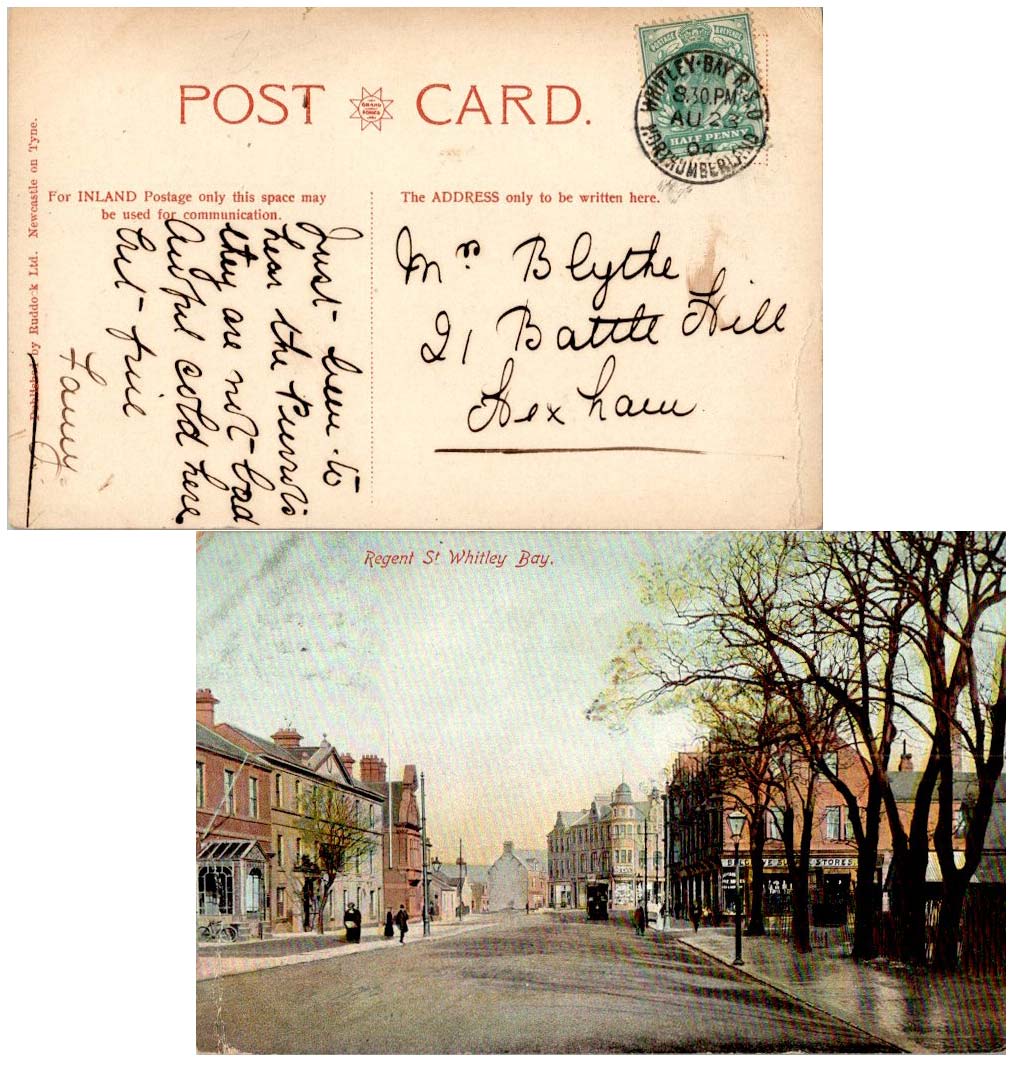 POST CARD.
GRAND SERIES
POSTAGE & REVENUE
HALF PENNY
WHITLEY·BAY R.S.O
8.30.PM
AU 23
04
NORTHUMBERLAND
For INLAND Postage only this space may
be used for communication.
The ADDRESS only to be written here.
Published by Ruddock Ltd. Newcastle on Tyne.
Just been to
hear the Pierrots
they are not bad
Awful cold here
but fine
Fanny
Mrs Blythe
21 Battle Hill
Hexham
Regent St Whitley Bay.
STORES